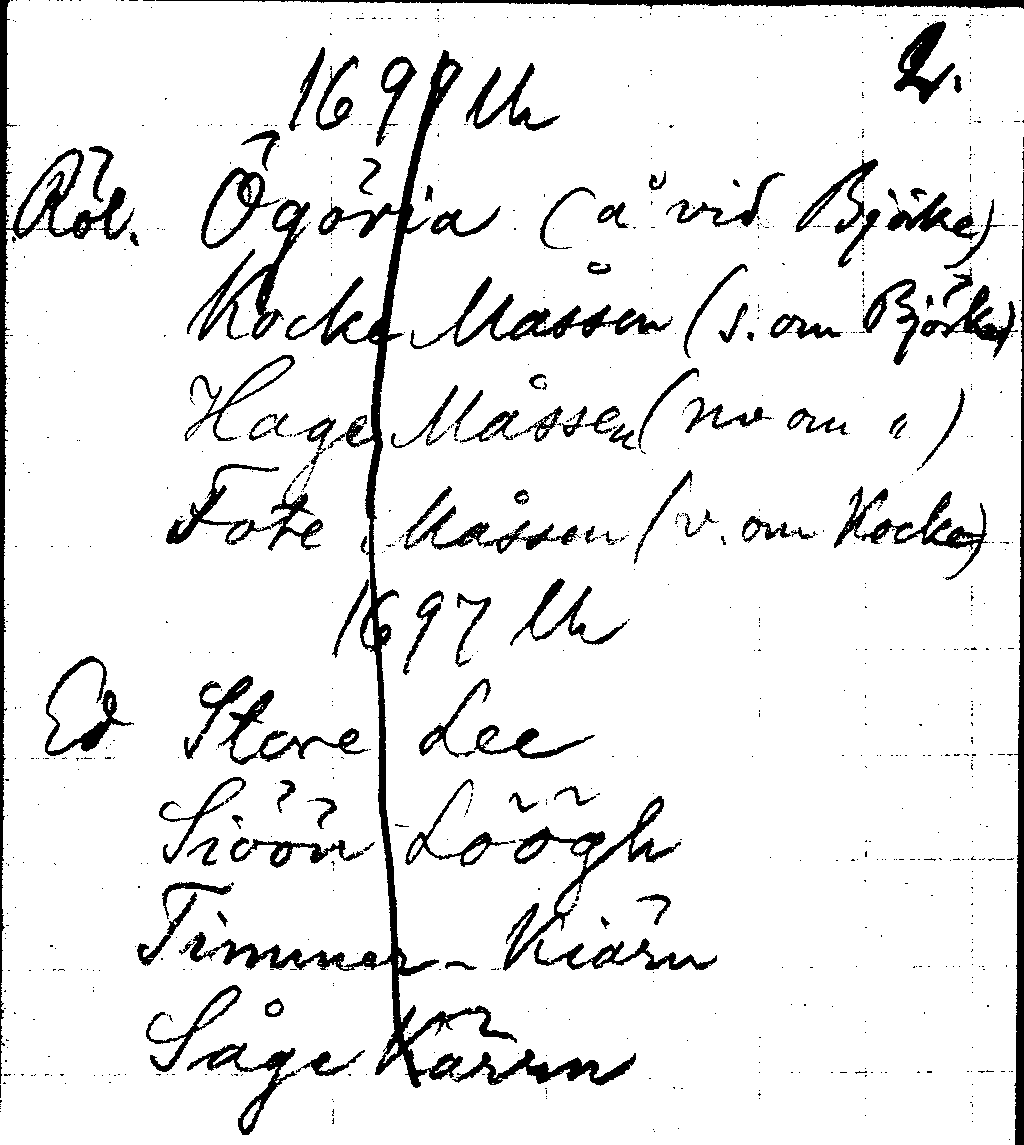 2.
1699 Uh
Röl. Ögöria (å vid Björke)
Kocke Måssen (s. om Björke)
Hage Måssen (nv om ")
Fote Måssen (v. om Kocke)
1697 Uh
Ed Store Lee
Siöön Löögh
Timmer-Kiärn
Såge Kärrn